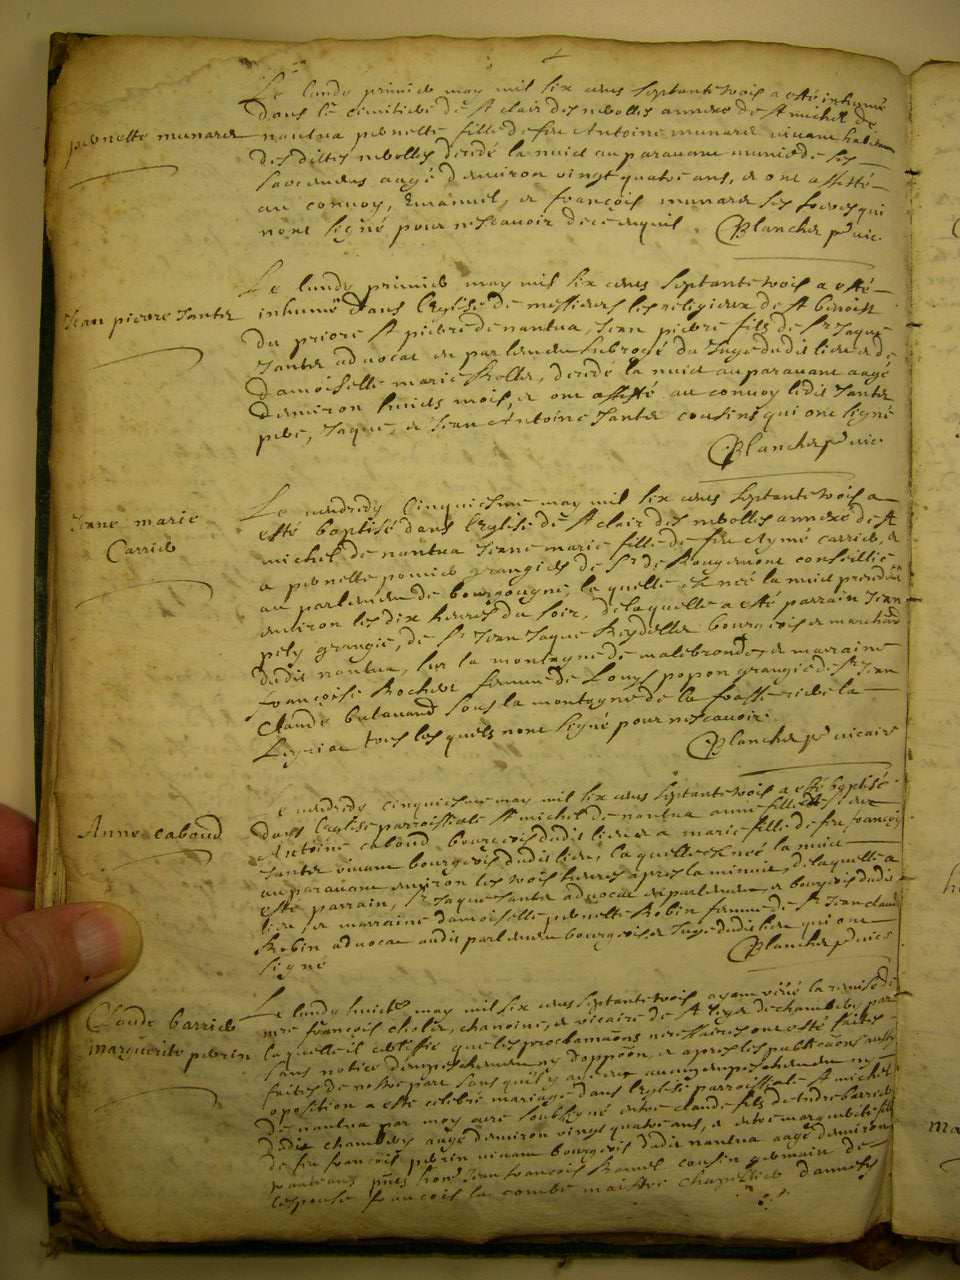 Le lundy premier may mil six cens septante trois a esté inhumé
dans le cimitiere de St clair des nerolles annexe de St michel de
pernette munard
nantua pernette fille de feu Antoine munard vivant habitant
des dittes decedé la nuict auparavant munie de ses
sacremens aagé denviron vingt quatre ans, et ont assisté
au convoy, Emanuel, et françois munard ses freres qui
nont signé pour ne scavoir de ce enquis. Blanchet pbre vic.
Le lundy premier may mil six cens septante trois a esté
Jean pierre Jantet
inhumé dans l'Eglise de messieurs les religieux de St benoist
du prioré St pierre de nantua, Jean pierre fils de Sr Jaque
Jantet advocat en parlement subrogé du Juge dudit lieu et de
damoiselle marie decedé la nuict auparavant aagé
denviron huict mois, et ont assisté au convoy ledit Jantet
pere, Jaque, et Jean Antoine Jantet cousins qui ont signé
Blanchet pbre vic.
Le vendredy cinquiesme may mil six cens septante trois a
Jeane marie
Carrier
esté baptisé dans l'Eglise de St clair des annexe de St
michel de nantua Jeanne marie fille de feu Aymé carrier, et
a pernette pomier grangiers de Sr de Rougemont conseillier
au parlement de bourgougne, laquelle est née la nuict
environ les dix heures du soir, de laquelle a esté parrain Jean
pely grangier, de Sr Jean Jaque Reydellet bourgeois et marchand
dudit nantua, sur la montagne de malebronde, et marraine
françoise Rochet femme de Louys popon grangier de Sr Jean
Claude sous la montagne de la
tous les quels nont signé pour ne scavoir.
Blanchet pbre vicaire
Le vendredy cinquiesme may mil six cens septante trois a esté baptisé
Anne caboud
dans l'Eglise parroissiale St michel de nantua anne fille de Sieur
Antoine caboud bourgeois dudit lieu et a marie fille de feu françois
Jantet vivant bourgeois dudit lieu, laquelle est née la nuict
auparavant environ les trois heures apres la minuit, de laquelle a
esté parrain, Sr Jaque Jantet advocat en parlement, et bourgeois dudit
lieu, et marraine damoiselle pernette Robin femme de Sr Jean claude
Robin advocat audit parlement bourgeois, et Juge dudit lieu qui ont
signé
Blanchet pbre vic.
Le lundy huict may mil six cens septante trois ayant veu la remise de
Claude barrier
marguerite perrin
mre françois chanoine, et vicaire de St leger de chambery par
laquelle il certifie que les proclamaōns necessaires ont esté faites
sans notice dempeschement ny doppōon, et apres les publicaōns aussi
faites de nostre part sans qu'il y ayt eu aucun empeschement ny
oposition a esté celebré mariage dans l'Eglise parroissiale St michel
de nantua par moy curé soubsigné entre claude fils de barrier
dudit chambery aagé denviron vingt quatre ans, et entre marguerite fille
de feu françois perrin vivant bourgeois dudit nantua aagé denviron
Jean françois cousin germain de
lespouse françois la combe maistre